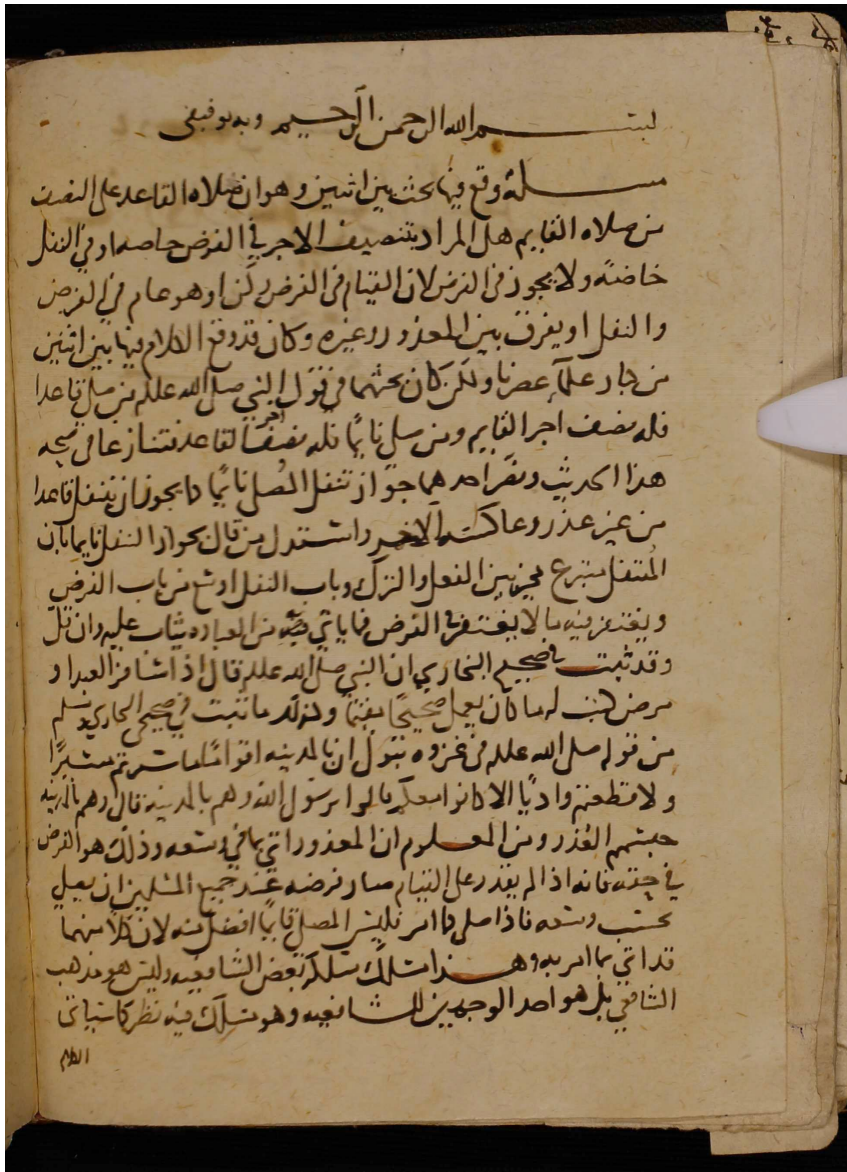 بسم الله الرحمن الرحيم وبه توفيقي
مسلة وقع فيها بحث بين اثنين وهو ان صلاه القاعد على النصف
من صلاه القايم هل المراد بتنصيف الاجر في الفرض خاصه او في النفل
خاصة ولا يجوز في الفرض لان القيام في الفرض ركن او هو عام في الفرض
والنفل او يفرق بين المعذور وغيره وكان قد وقع الكلام فيها بين اثنين
من كبار علماء عصرنا ولكن كان بحثهما في قول النبي صلى الله علله من صلى قاعدا
فله نصف اجر القايم ومن صلى نايما فله نصف اجر القاعد فتنازعا في صحه
هذا الحديث ونصر احدهما جواز تنفل المصلى نايما كما يجوز ان يتنفل قاعدا
من غير عذر وعاكسه الآخر واستدل من قال بجواز النفل نايما بان
المتنفل متبرع مخير بين الفعل والترك وباب النفل اوسع من باب الفرض
ويغتفر فيه ما لا يغتفر في الفرض فما ياتي به من العباده يثاب عليه وان قل
وقد ثبت في صحيح البخاري ان النبي صلى الله علله قال اذا سافر العبد او
مرض كتب له ما كان يعمل صحيحا مقيما وكذلك ما ثبت في صحيحى البخاري ومسلم
من قوله صلى الله علله في غزوه تبوك ان بالمدينه اقواما ما سرتم مسيرا
ولا قطعتم واديا الا كانوا معكم قالوا يرسول الله وهم بالمدينة قال وهم بالمدينه
حبسهم العذر ومن المعلوم ان المعذور اتى بما في وسعه وذلك هو الفرض
في حقه فانه اذا لم يقدر على القيام صار فرضه عند جميع المسلمين ان يصلي
بحسب وسعه فاذا صلى كما امر فليس المصلى قايما افضل منه لان كلا منهما
قد اتى بما امر به وهذا مسلك سلكه بعض الشافعيه وليس هو مذهب
الشافعي بل هو احد الوجهين للشافعيه وهو مسلك فيه نظر كما سياتى
الكلام